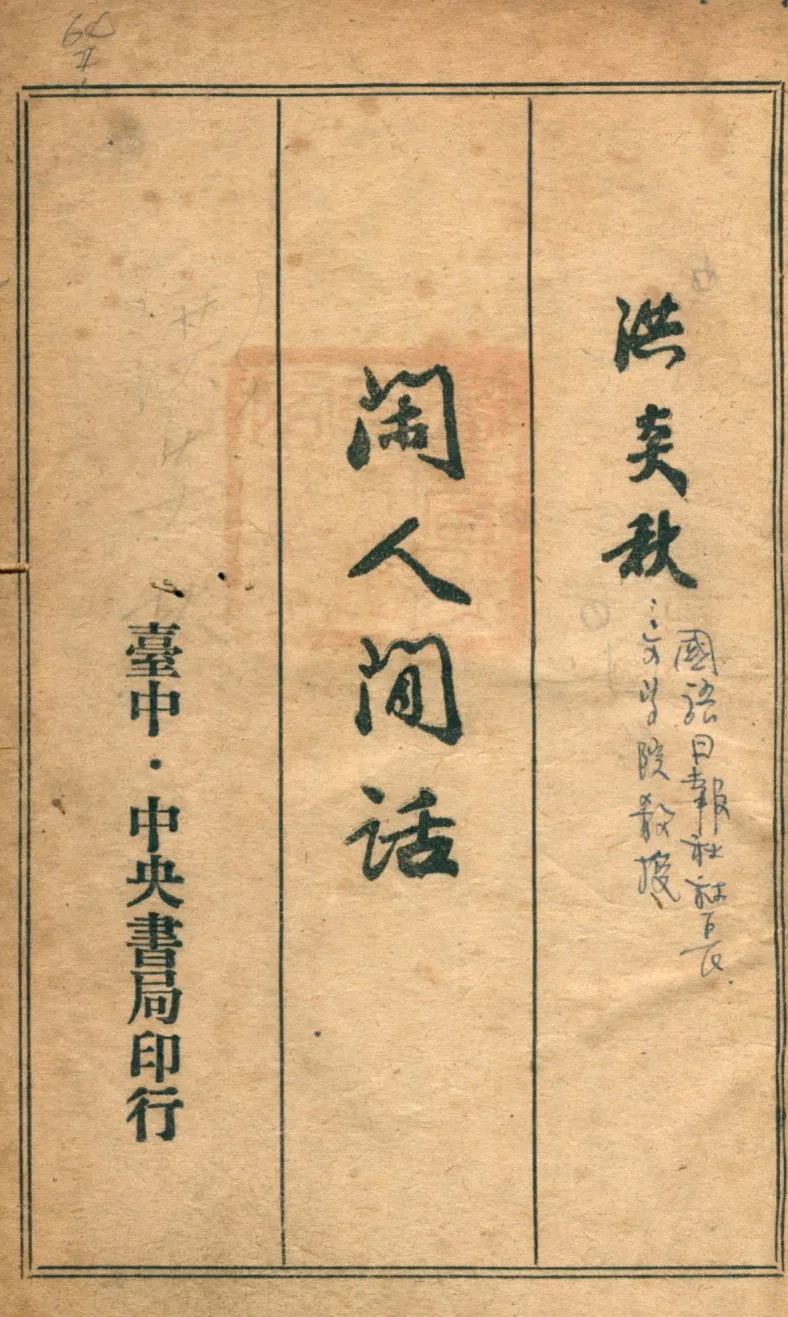 洪炎秋
國語日報社社長
文学院教授
閑人閒話
臺中·中央書局印行